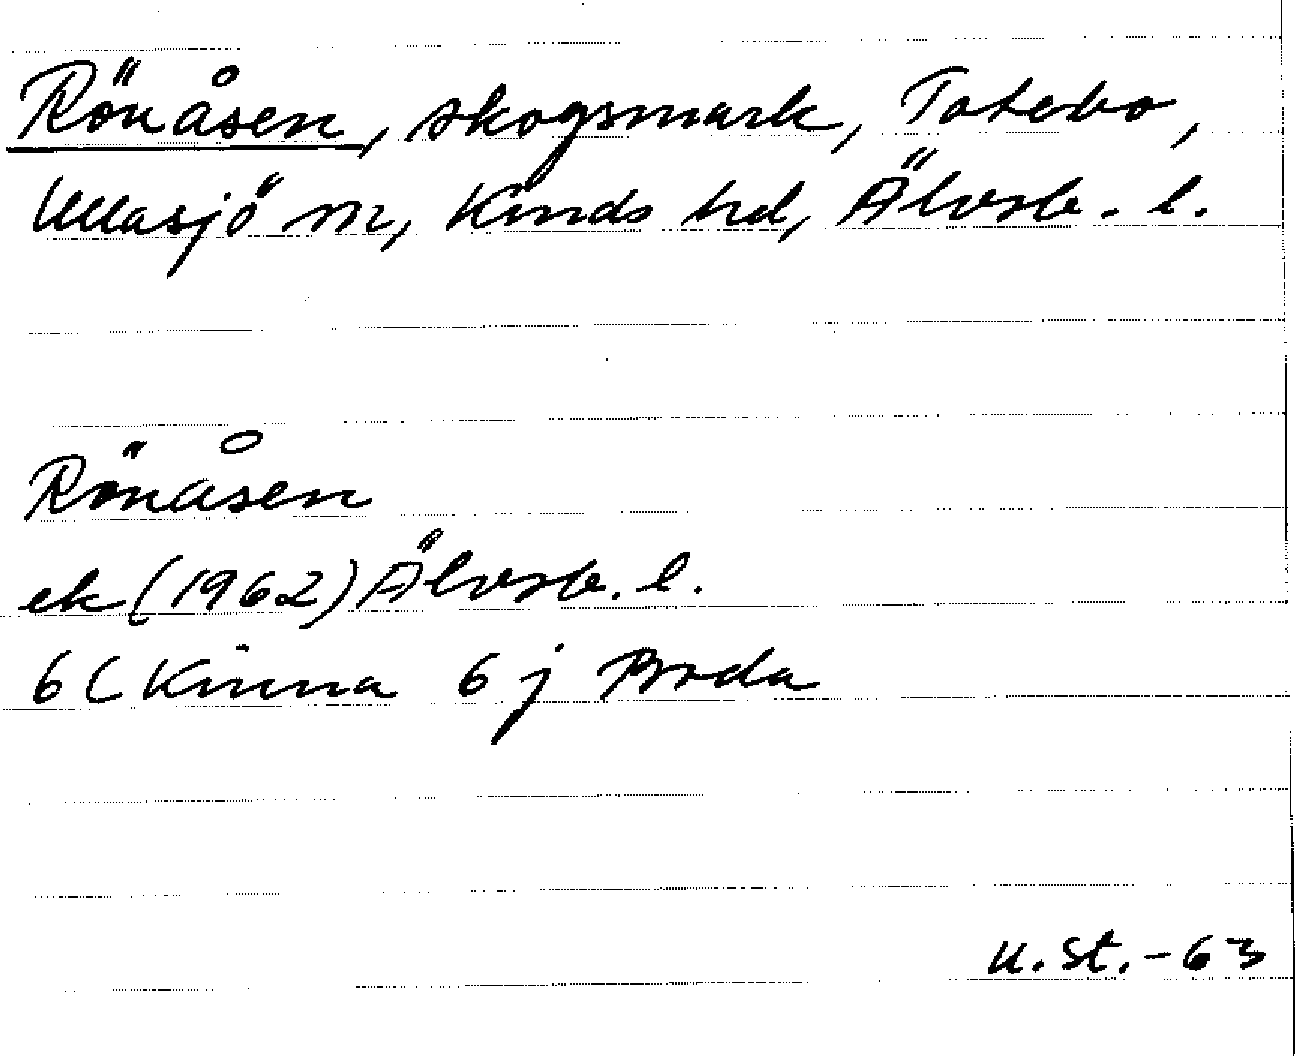 Rönåsen, skogsmark, Totebo,
Ullasjö sn, Kinds hd, Älvsb. l.
Rönåsen
ek (1962) Älvsb. l.
6C Kinna 6 j Broda
U. St. - 63